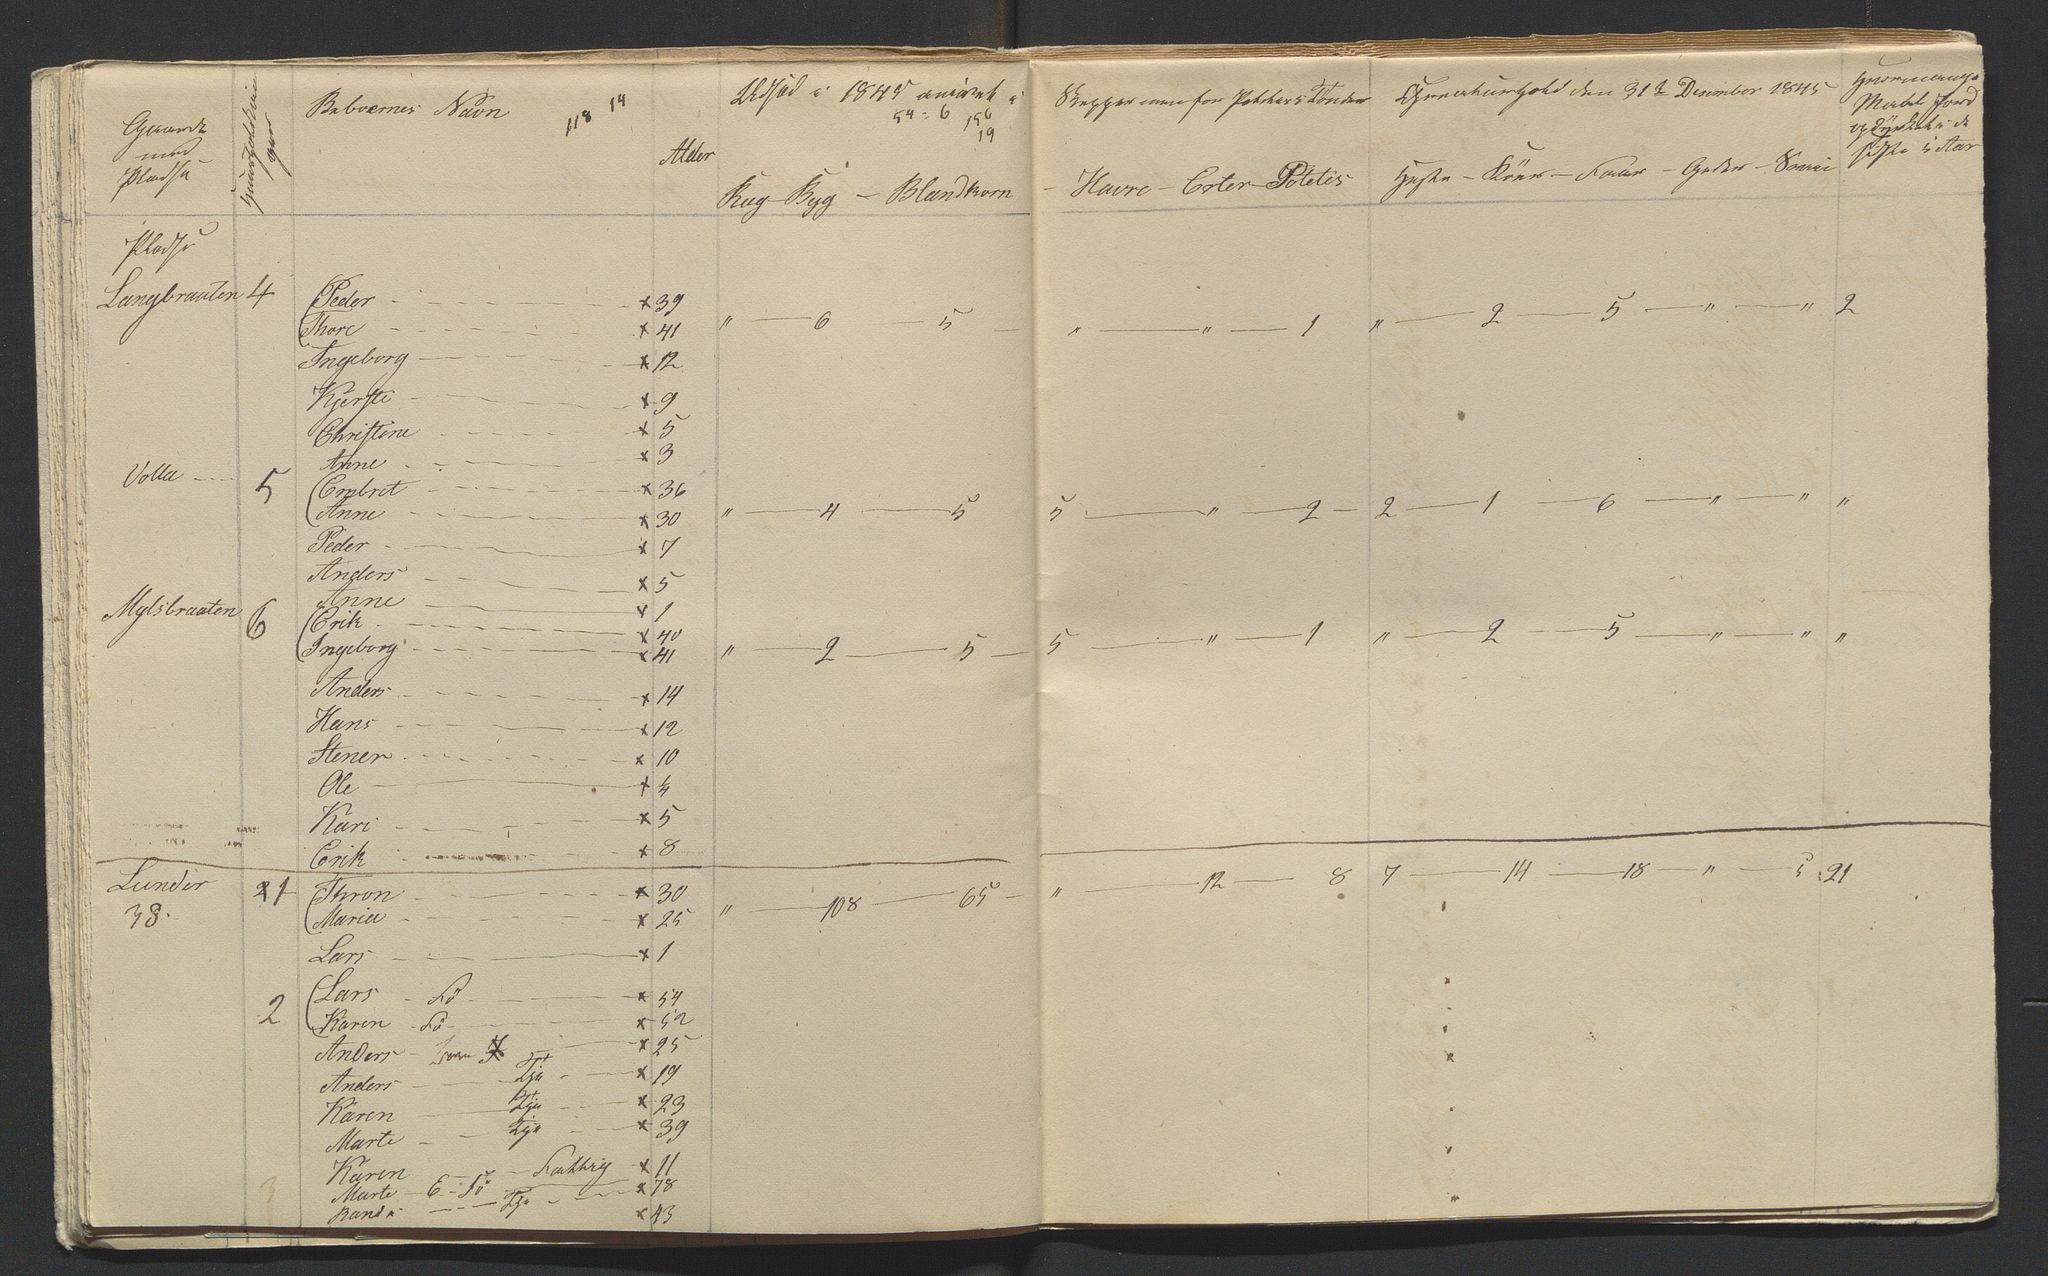 Beboernes Navn 118 14 Udsæd i 1845 54 6 156 19 Skjepper men for Poteter i Tønder den 31te Desember 1845
Gaarde
med
Pladse
Alder
Rug - Byg - Blandkorn - Havre - Erter - Potetes Heste - Kjøer - Faar - Geder - Sviin
opdyrket i de
sidste 5 Aar
Pladse
Langbraaten 4 Peder x 39
Thore x 41 " 6 5 " " 1 " 2 5 " " 2
Ingeborg x 12
Kjersti x 9
Christine x 5
Anne x 3
Volla 5 Embret x 36
Anne x 30 " 4 5 5 " 2 2 1 6 " " "
Peder x 7
Anders x 5
Anne x 1
Mylsbraaten 6 Erik x 40
Ingeborg x 41 " 2 5 5 " 1 " 2 5 " " "
Anders x 14
Hans x 12
Stener x 10
Ole x 4
Kari x 5
Erik x 8
Lunder 1 Thron x 30
38. Maria x 25 " 108 65 " 12 8 7 14 18 " 5 21
Lars x 1
2 Lars Fö x 54
Karen Fö x 52
Anders x 25
Anders Tje x 19
Karen Tje x 23
Marte Tje x 39
Karen Fattig x 11
Marte E - Fö x 78
Randi Tje x 43